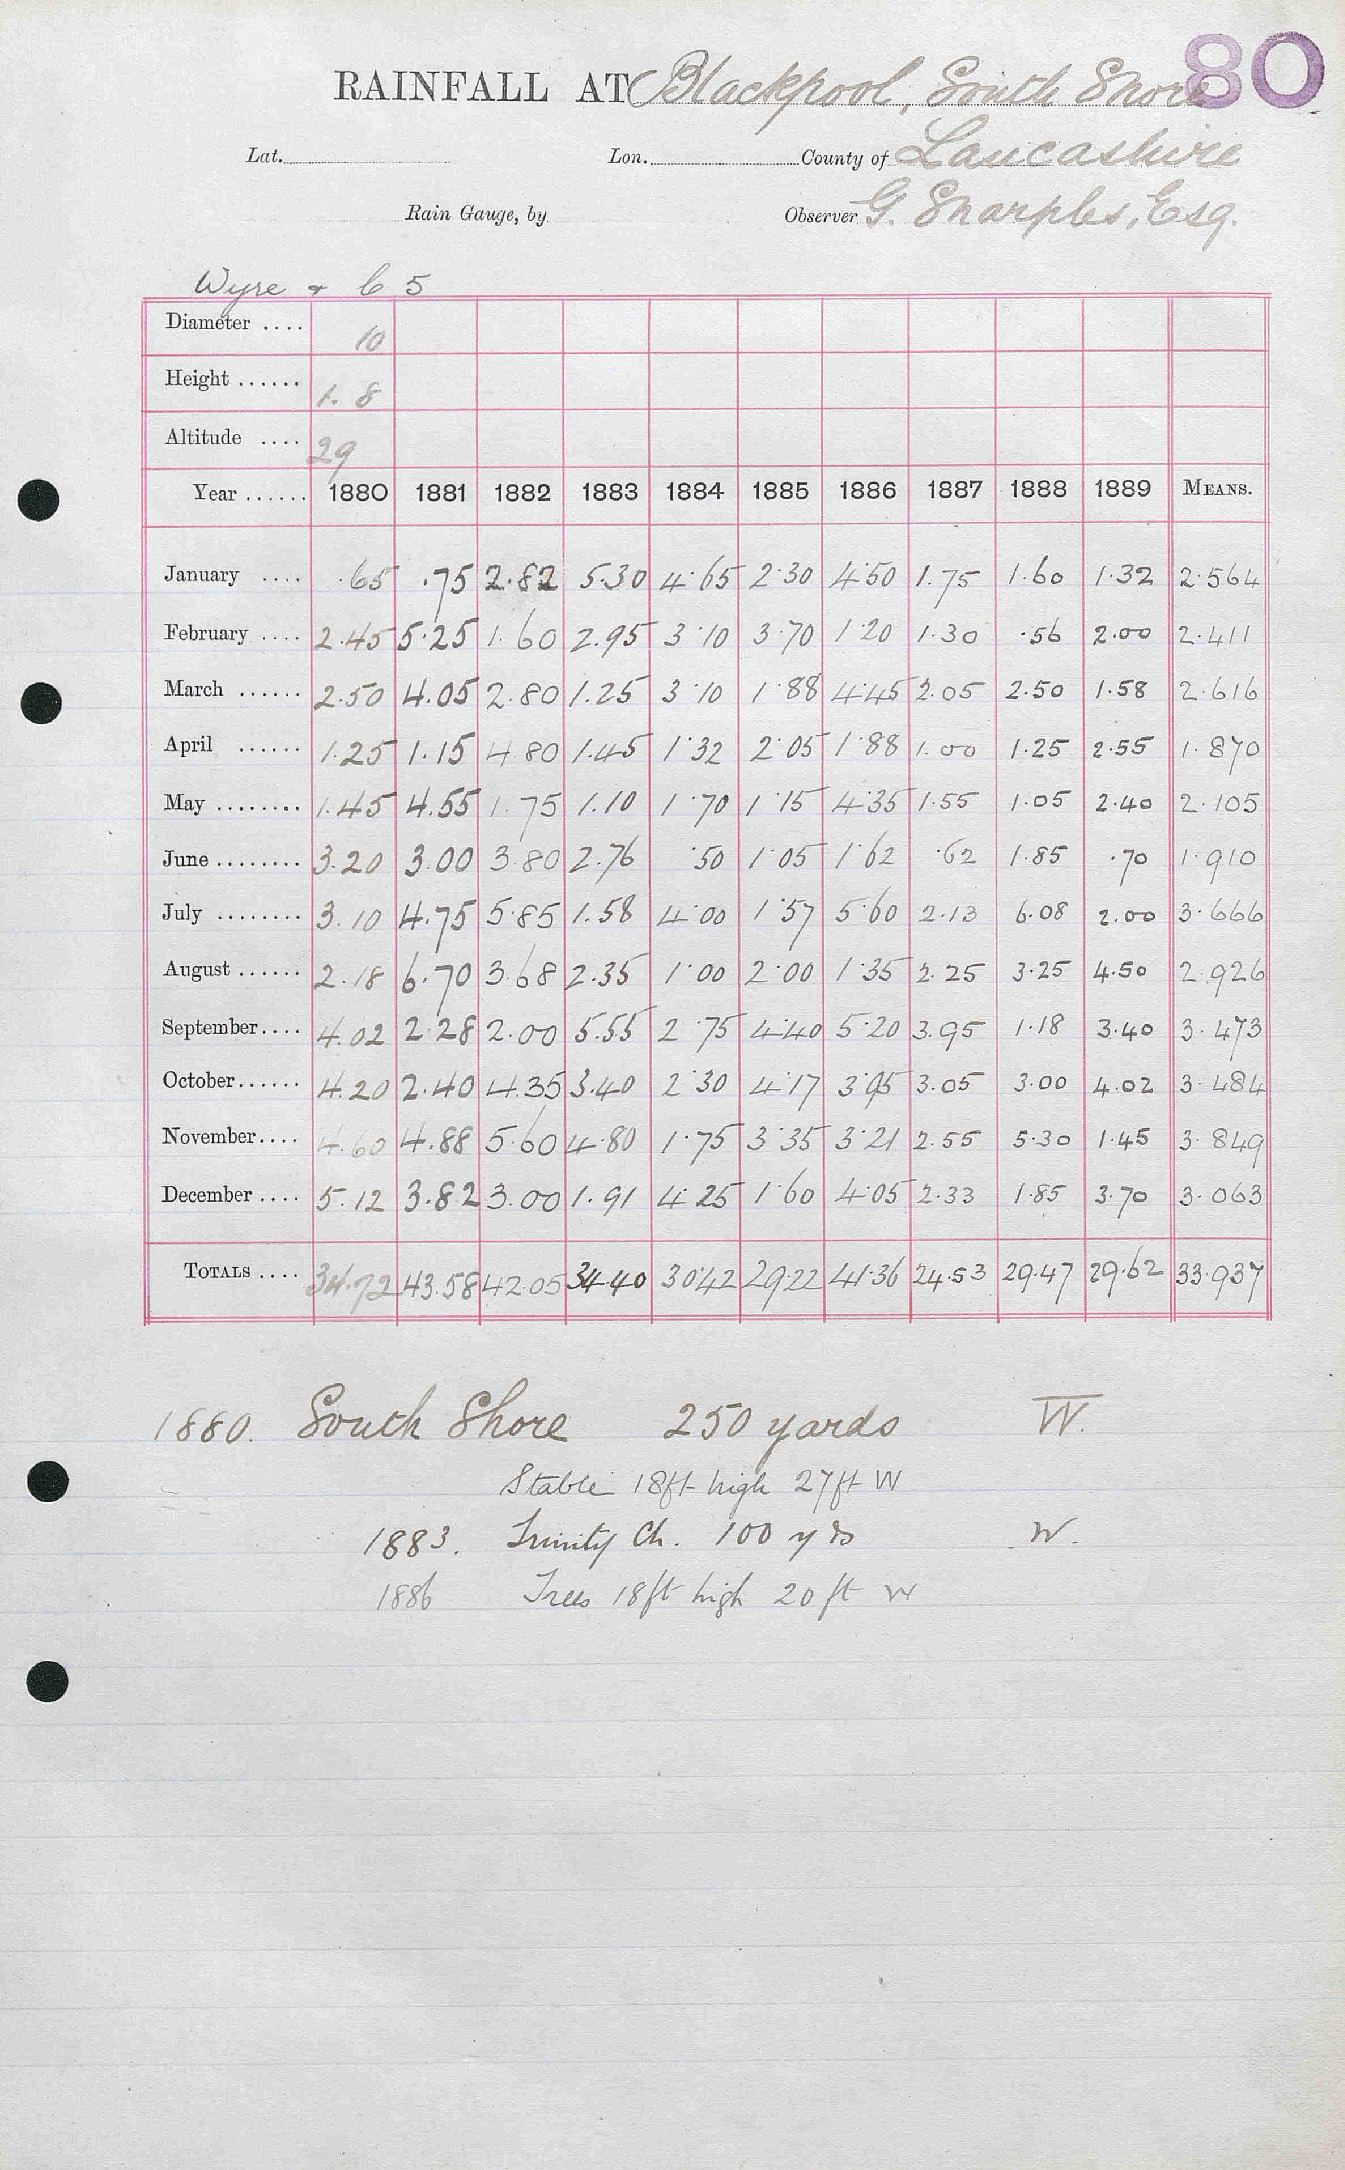 80
RAINFALL AT Blackpool, South Shore
Lat. Lon. County of Lancashire
Rain Gauge, by Observer G. Sharples, Esq.
Wyre
Diameter .... 10
Height ...... 1. 8
Altitude .... 29
Year ...... 1880 1881 1882 1883 1884 1885 1886 1887 1888 1889 MEANS.
January .... .65 .75 2.82 5.30 4.65 2.30 4.50 1.75 1.60 1.32 2.564
February .... 2.45 5.25 1.60 2.95 3.10 3.70 1.20 1.30 .56 2.00 2.411
March ...... 2.50 4.05 2.80 1.25 3.10 1.88 4.45 2.05 2.50 1.58 2.616
April ...... 1.25 1.15 4.80 1.45 1.32 2.05 1.88 1.00 1.25 2.55 1.870
May ........ 1.45 4.55 1.75 1.10 1.70 1.15 4.35 1.55 1.05 2.40 2.105
June ........ 3.20 3.00 3.80 2.76 .50 1.05 1.62 .62 1.85 .70 1.910
July ........ 3.10 4.75 5.85 1.58 4.00 1.57 5.60 2.13 6.08 2.00 3.666
August ...... 2.18 6.70 3.68 2.35 1.00 2.00 1.35 2.25 3.25 4.50 2.926
September.... 4.02 2.28 2.00 5.55 2.75 4.40 5.20 3.95 1.18 3.40 3.473
October...... 4.20 2.40 4.35 3.40 2.30 4.17 3.95 3.05 3.00 4.02 3.484
November.... 4.60 4.88 5.60 4.80 1.75 3.35 3.21 2.55 5.30 1.45 3.849
December .... 5.12 3.82 3.00 1.91 4.25 1.60 4.05 2.33 1.85 3.70 3.063
TOTALS .... 34.72 43.58 42.05 34.40 30.42 29.22 41.36 24.53 29.47 29.62 33.937
1880. South Shore 250 yards W.
Stable 18ft high 27ft W
1883. Trinity Ch. 100 yds W.
1886 Trees 18ft high 20 ft W